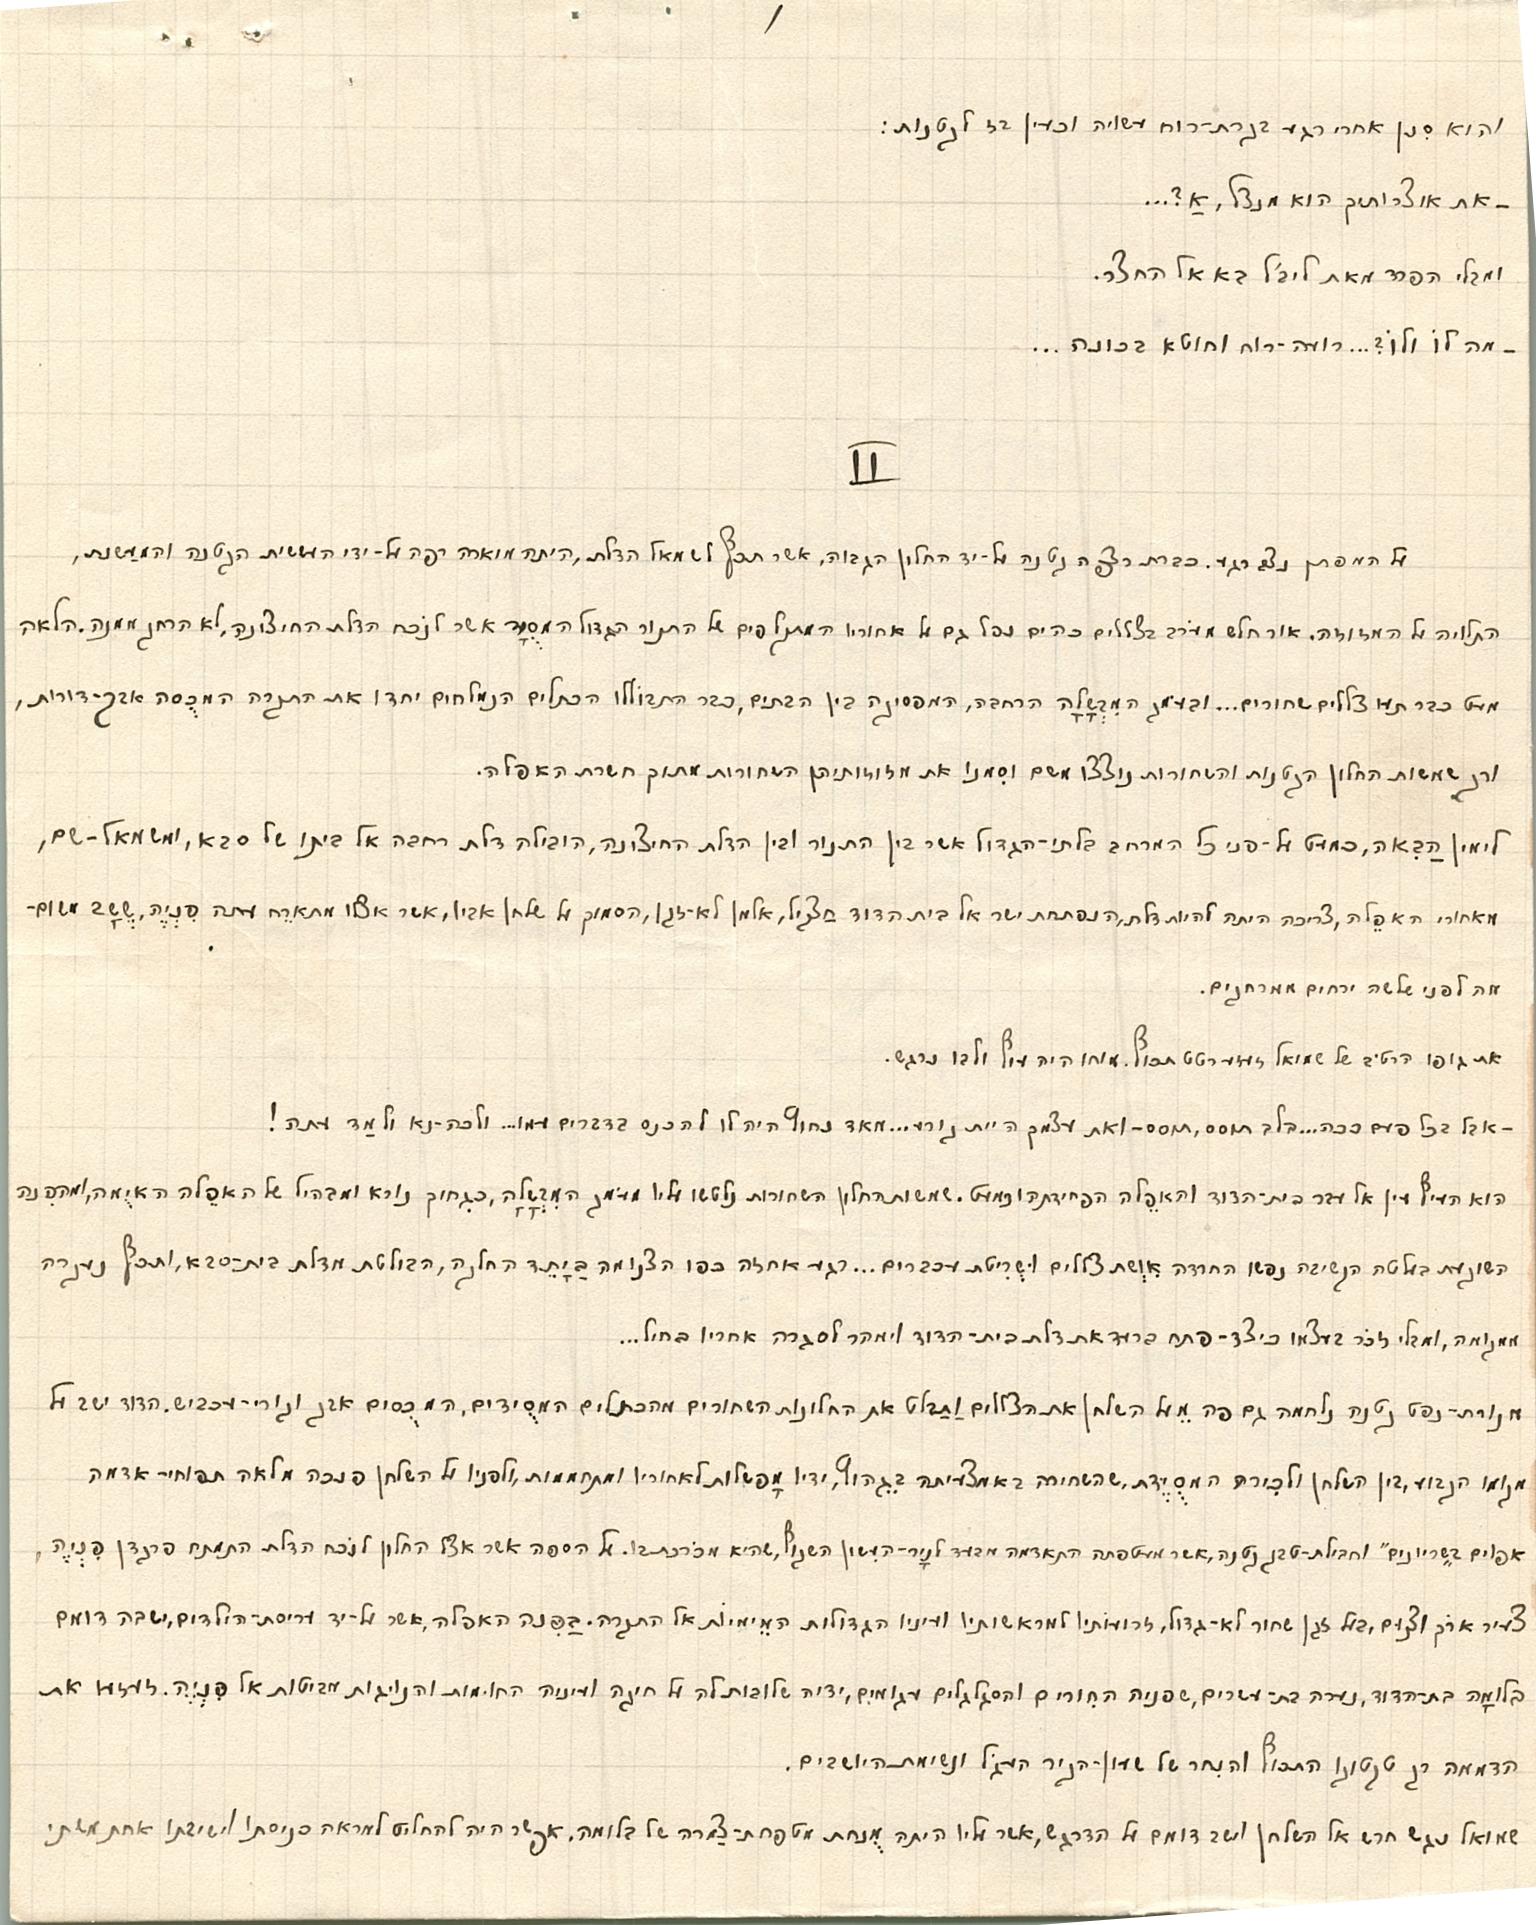 והוא סִנן אחרי רגע בקרת-רוח עשויה וכעין בז לקטנות:
– את אוצרותיך הוא מנצל, אַ?...
ומבלי הפרד מאת ליבל בא אל החצר.
– מה לוֹ ולוֹ?... רועה-רוח וחוטא בכונה...
II
על המפתן נצב רגע. כברת רצפה קטנה על-יד החלון הגבוה, אשר תכף לשמאל הדלת, היתה מוארה רפה על-ידי העששית הקטנה והמעֻשנת,
התלויה על המזוזה. אור חלש מעֹרב בצללים כהים נפל גם על אחוריו המתקלפים של התנור הגדול המסֻיד אשר לנֹכח הדלת החיצונה, לא הרחק ממנה. הלאה
מעט כבר תעו צללים שחורים... ובעֹמק המִבְשָלָה הרחבה, המפסיקה בין הבתים, כבר התבוללו הכתלים הנמלחים יחדו את התקרה המכֻסה אבק-דורות,
ורק שמשות החלון הקטנות והשחורות נוצצו משם וסִמנו את מזוזותיהן השחורות מתוך חשרת האפלה.
לימין הַבּאה, כמעט על-פני כל המרחב בלתי-הגדול אשר בין התנור ובין הדלת החיצונה, הובילה דלת רחבה אל ביתו של סבא, ומשמאל – שם,
מאחורי האפֵלה, צריכה היתה להיות דלת, הנפתחת ישר אל בית הדוד חַצקיל, אלמן לא-זקן, הסמוך על שלחן אביו, אשר אצלו מתארֵח עתה פִנְיֶה, שֶשָב משום-
מה לפני שלשה ירחים ממרחקים.
את גופו הרטֹב של שמואל זעזע רטט תכוף. מוחו היה עיֵף ולבו נרגש.
– אבל בכל פעם ככה... בלב תוסס, תוסס – ואת עצמך היית קורע... מאד נחוץ היה לו להכנס בדברים עמו... ולכה-נא ולמַד עתה!
הוא העיף עין אל עבר בית-הדוד והאפֵלה הפחידתהו כמעט. שמשות החלון השחורות נלטשו עליו מעֹמק המִבְשָלָה, כגִחוך נורא ומבהיל של האפֵלה האיֻמה, ומהפִנה
השוקעת בעלטה הקשיבה נפשו החרדה אִוְשת צללים ושְרִיטת עכברים... רגע אחזה כפו הצנומה בַיָתֵד החלקה, הבולטת מדלת בית-סבא, ותכף נעקרה
ממקומה, ומבלי זכֹר בעצמו כיצד – פתח ברעד את דלת בית-הדוד וימהר לסגרה אחריו בחיל...
מנורת-נפט קטנה נלחמה גם פה מֵעל השלחן את הצללים וַתַּבלט את החלונות השחורים מהכתלים המסֻידים, המכֻסים אבק וקורי-עכביש. הדוד ישב על
מקומו הקבוע, בין השלחן ולכִירה המסֻיֶּדת, שהשחירה באמצעיתה בְּגִהוץ, ידיו מָפשלות לאחוריו ומתחממות, ולפניו על השלחן פנכה מלאה תפוחי-אדמה
אפוים ב„שריונים״ וחבילת-טבק קטנה, אשר מעטפתה התאדמה מבעד לנְיָר-העשון השקוף, שהיא מכֹרכת בו. על הספה אשר אצל החלון לנֹכח הדלת התמתח פרקדן פִנְיֶה,
צעיר ארֹך וצנום, בעל זקן שחור לא-גדול, זרועותיו למראשותיו ועיניו הגדולות המֵימיות אל התקרה. בַפִנה האפלה, אשר על-יד עריסת-הילדים, ישבה דומם
בלומָה בת-הדוד, נערה בת-עשרים, שפניה החִורים והסגלגלים עגומים, ידיה שלובות לה על חיקה ועיניה החומות והנוגות מביטות אל פִנְיֶה. זעזעו את
הדממה רק טקטוקו התכוף והנִחר של שעון-הקיר העגֹל ונשימת היושבים.
שמואל נגש חרש אל השלחן וישב דומם על הדרגש, אשר עליו היתה מֻנחת מטפחת-צַמרה של בלומה. אפשר היה להחליט למראה כניסתו וישיבתו אחת משתי